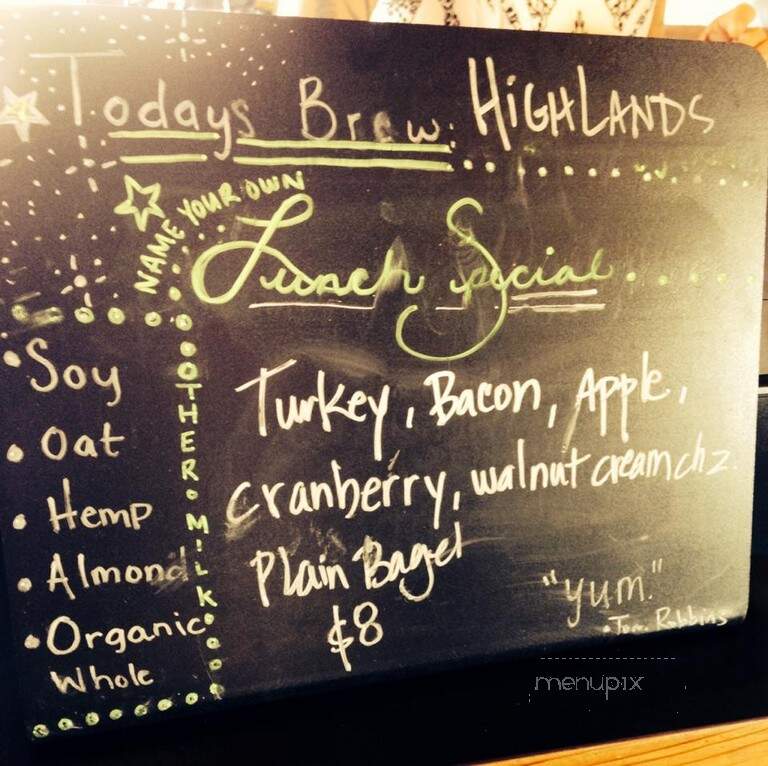 Todays Brew: HIGHLANDS
NAME YOUR OWN
Lunch Special
OTHER MILK
Soy
Oat
Hemp
Almond
Organic
Whole
Turkey, Bacon, Apple,
Cranberry, walnut cream chz.
Plain Bagel
$8
"yum."
Tom Robbins
menupix